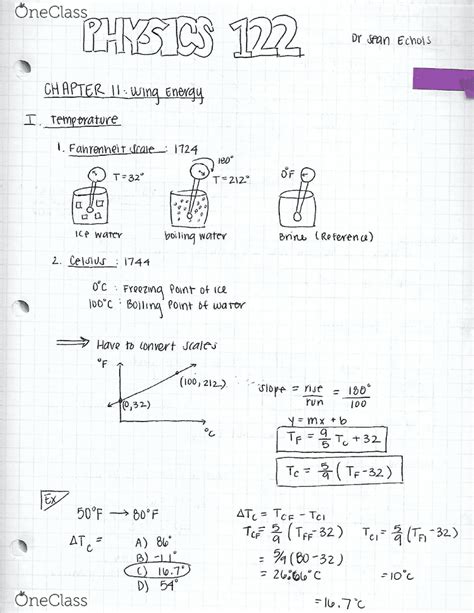 OneClass
PHYSICS 122
Dr Sean Echols
CHAPTER 11: Wing Energy
I. Temperature
1. Fahrenheit Scale : 1724
180°
T=32°
T=212°
0°F
ice water
boiling water
Brine (Reference)
2. Celsius : 1744
0°C : Freezing Point of Ice
100°C : Boiling Point of water
⟹ Have to convert scales
°F
(100,212)
(0,32)
°C
slope = rise/run = 180°/100
y = mx + b
T_F = 9/5 T_C + 32
T_C = 5/9 (T_F - 32)
Ex
50°F → 80°F
ΔT_C =
A) 86°
B) -11°
C) 16.7°
D) 54°
ΔT_C = T_CF - T_CI
T_CF = 5/9 (T_FF - 32)
T_CI = 5/9 (T_FI - 32)
= 5/9 (80-32)
= 26.66°C
= 10°C
= 16.7°C
OneClass